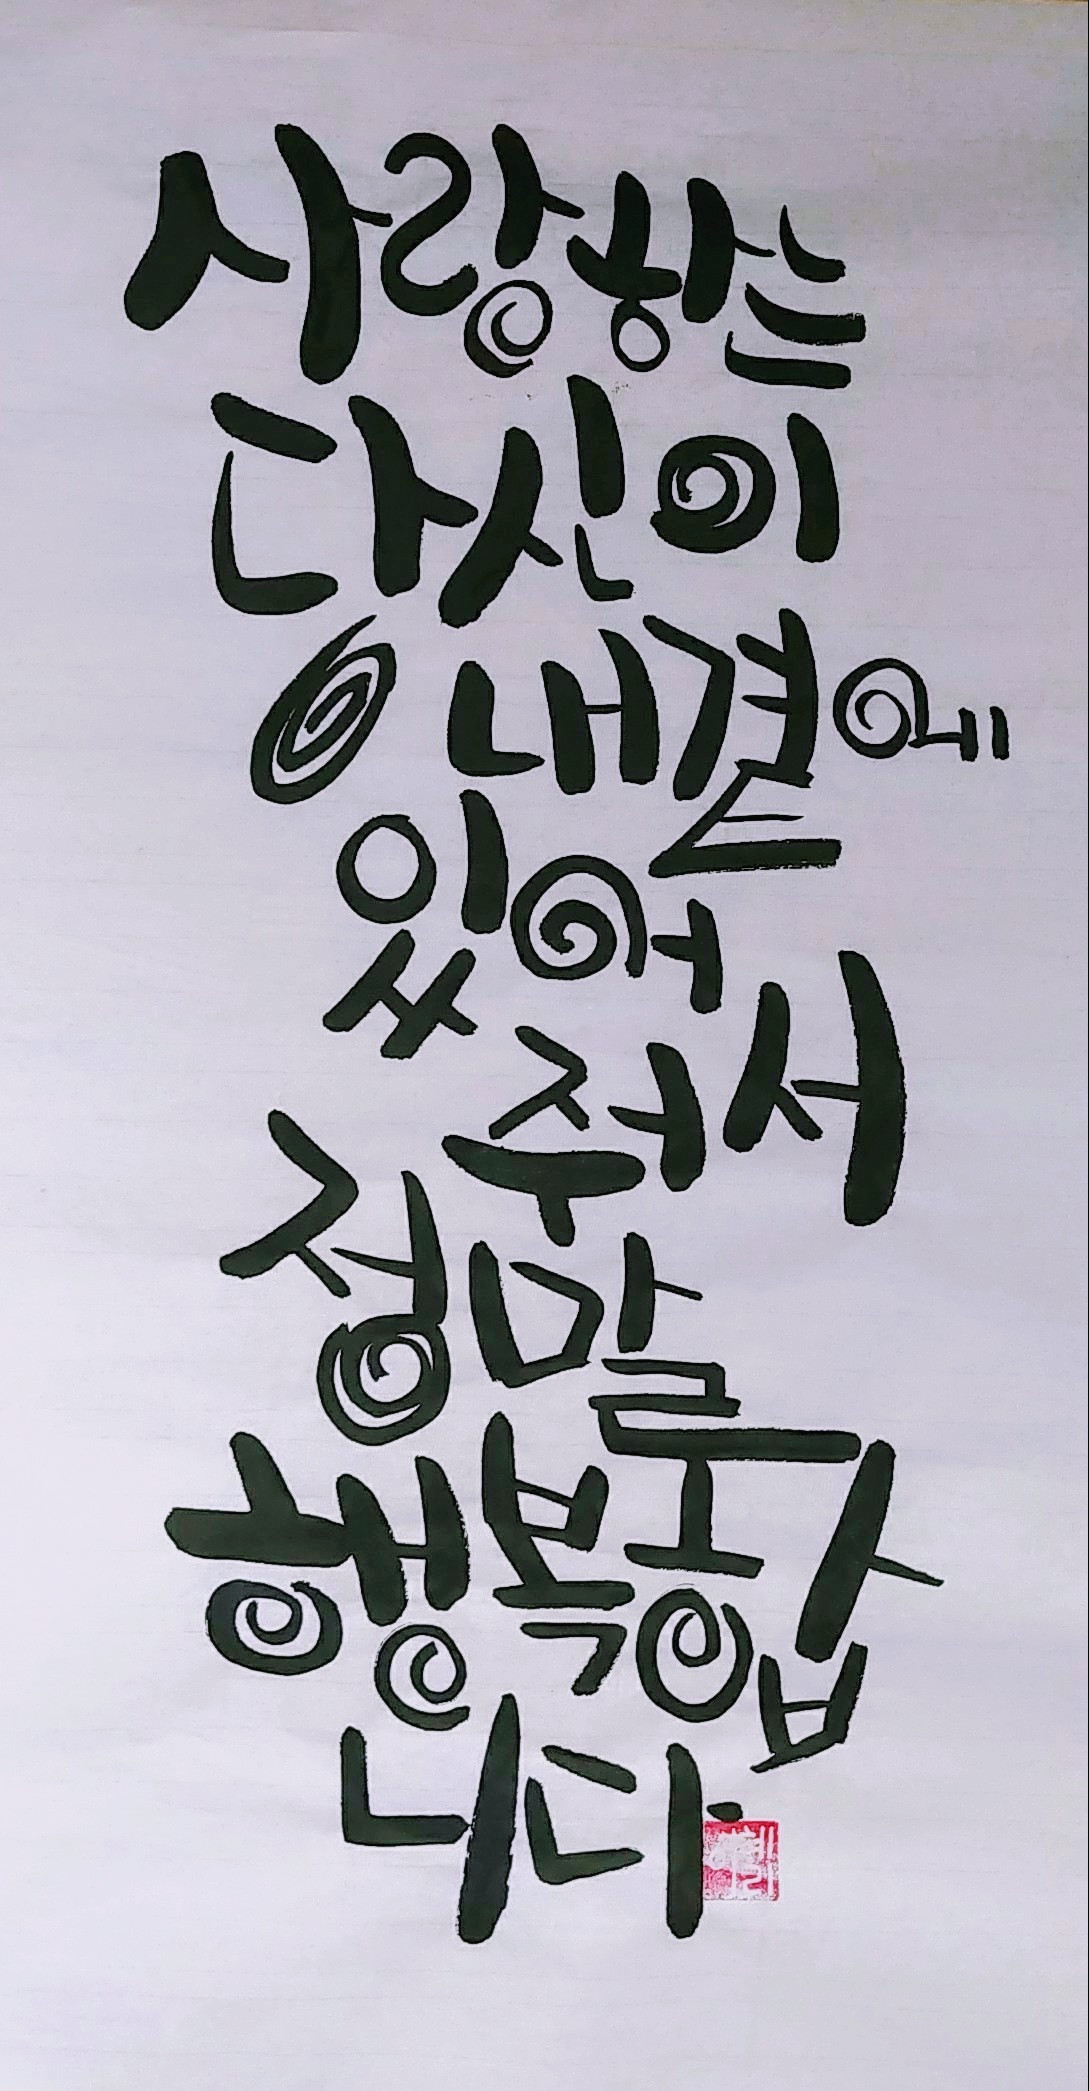 사랑하는
당신이
내 곁에
있어
주어서
정말
행복했습
니다